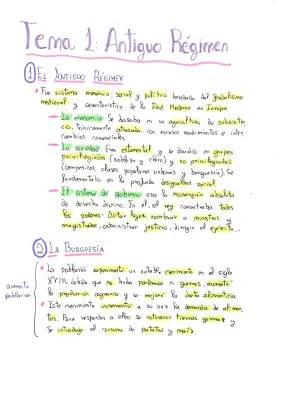 Tema 1: Antiguo Régimen
1 EL ANTIGUO RÉGIMEN
• Fue sistema económico, social y político heredado del feudalismo
medieval y característico de la Edad Moderna en Europa.
→ La economía: Se basaba en un agricultura de subsisten
cia, técnicamente atrasada con escasos rendimientos e inter
cambios comerciales.
→ La sociedad: Era estamental y se dividía en grupos
privilegiados (nobleza y clero) y no privilegiados
(campesinos, clases populares urbanas y burguesía). Se
fundamentaba en la profunda desigualdad social.
→ El sistema de gobierno: era la monarquía absoluta
de derecho divino. En él, el rey concentraba todos
los poderes: Dictar leyes, nombrar a ministros y
magistrados, administrar justicia, dirigir el ejército...
2 LA BURGUESÍA
• La población experimentó un notable crecimiento en el siglo
XVIII, debido que no hubo pandemias ni guerras, aumentó
la producción agraria y se mejoró la dieta alimenticia.
aumento
población
• Este crecimiento incrementó a su vez la demanda de alimen
tos. Para responder a ellos se roturaron tierras yermas y
se introdujo el consumo de patatas y maíz.